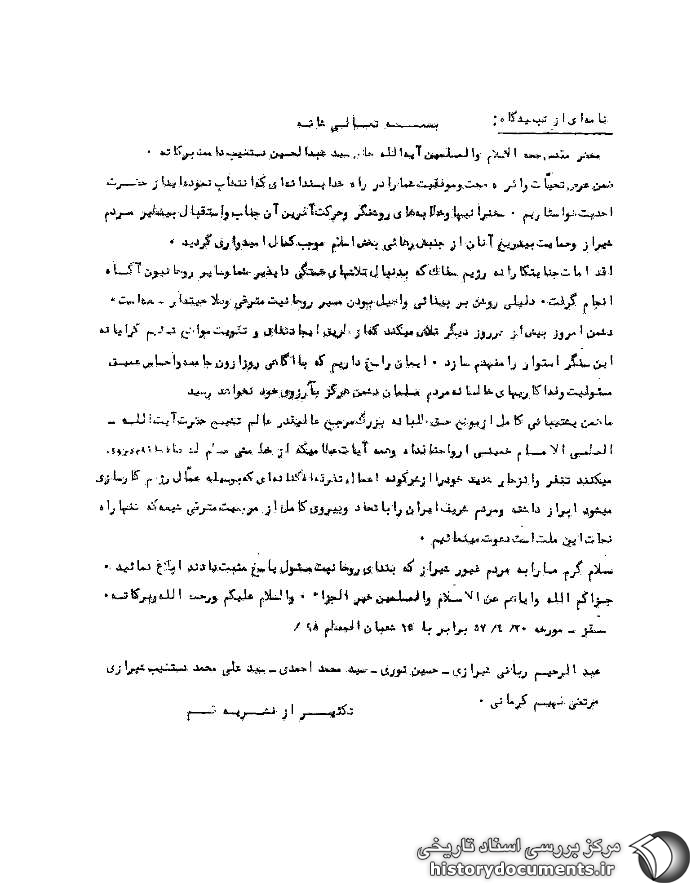 نامه‌ای از تبعیدگاه:
بسمه تعالی شانه
محضر مقدس حجة الاسلام والمسلمین آیة‌الله حاج سید عبدالحسین دستغیب دامت برکاته .
ضمن عرض تحیات وافره صحت و موفقیت شما را در راه خداپسندانه‌ای که انتخاب نموده‌اید از حضرت
احدیت خواستاریم . سخنرانیها وخطابه‌های روشنگر وحرکت‌آفرین آن جناب واستقبال بی‌نظیر مردم
شیراز وحمایت بیدریغ آنان از جنبش رهائی بخش اسلام موجب کمال امیدواری گردید .
اقدامات جنایتکارانه رژیم سفاک که بدنبال تلاشهای خستگی ناپذیر شما وسایر روحانیون آگاه
انجام گرفت، دلیلی روشن بر بینائی واصیل بودن مسیر روحانیت مترقی و
دشمن امروز بیش از هر روز دیگر تلاش میکند که از طریق ایجاد نفاق و تقویت مواضع
این سنگر استوار را منهدم سازد . ایمان راسخ داریم که با آگاهی روزافزون جامعه واحساس عمیق
مسئولیت وفداکاریهای خالصانه مردم مسلمان دشمن هرگز بآرزوی خود نخواهد رسید
ما ضمن پشتیبانی کامل از مواضع حق طلبانه بزرگ مرجع عالیقدر عالم تشیع حضرت آیت‌الله -
العظمی الامام خمینی ارواحنافداه وهمه آیات عظامیکه از خط مشی معظم له
میکنند تنفر وانزجار شدید خود را از هرگونه اعمال تفرقه‌افکنانه‌ای که بوسیله عمّال رژیم کارسازی
میشود ابراز داشته ومردم شریف ایران را باتحاد وپیروی کامل از مرجعیت مترقی شیعه که تنها راه
نجات این ملت است دعوت مینمائیم .
سلام گرم ما را به مردم غیور شیراز که بندای روحانیت مسئول پاسخ مثبت دادند ابلاغ نمائید .
جزاکم الله وایاهم عن الاسلام والمسلمین خیر الجزاء . والسلام علیکم ورحمة الله وبرکاته .
سقز - مورخه ۵۷/۴/۳۰ برابر با ۱۴ شعبان المعظم ۹۸/
عبدالرحیم ربانی شیرازی - حسین نوری - سید محمد احمدی - سید علی محمد دستغیب شیرازی
مرتضی فهیم کرمانی .
تکثیر از نشریه قم
مرکز بررسی اسناد تاریخی
historydocuments.ir